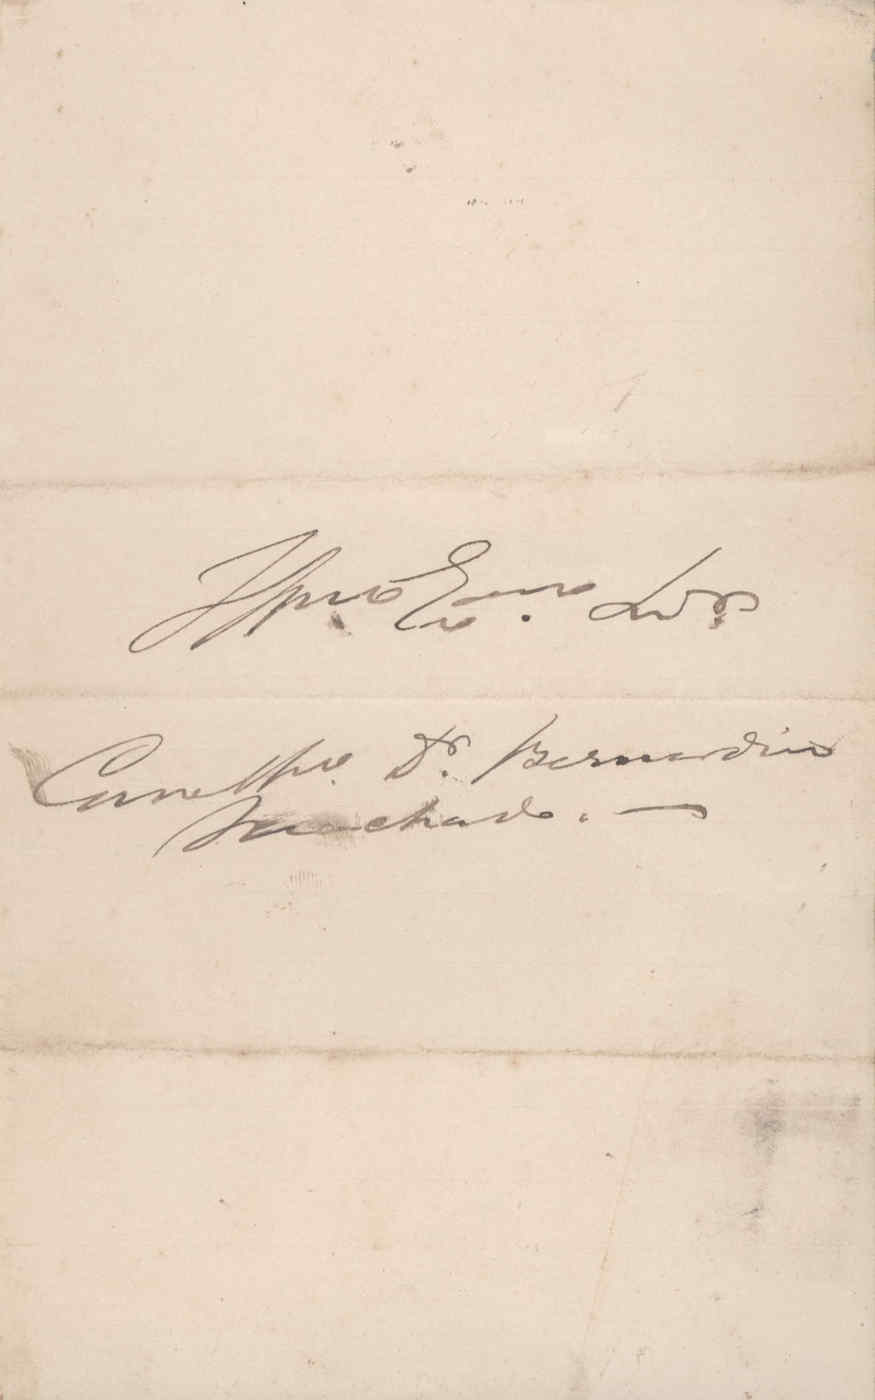 Illmo Exmo Snr
Conselhro. Dr. Bernardino
Machado. —